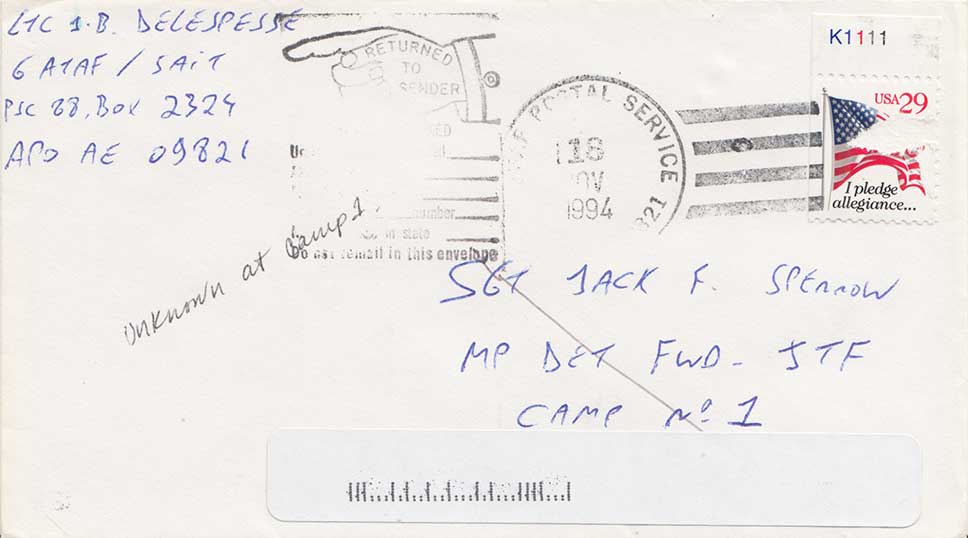 LTC J.B. DELESPESSE
6 ATAF / SAIT
PSC 88, BOX 2324
APO AE 09821
RETURNED
TO
SENDER
number
in state
Do not remail in this envelope
POSTAL SERVICE
18
NOV
1994
K1111
USA 29
I pledge
allegiance...
Unknown at Camp 1.
SGT JACK F. SPERROW
MP DET FWD - JTF
CAMP Nº 1